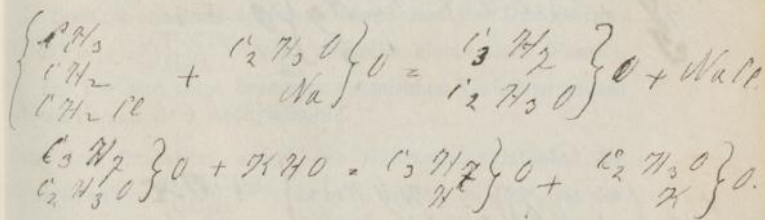 CH3
CH2 + C2H3O Na } O = C3H7 C2H3O } O + NaCl.
CH2Cl
C3H7 C2H3O } O + KHO = C3H7 H } O + C2H3O K } O.